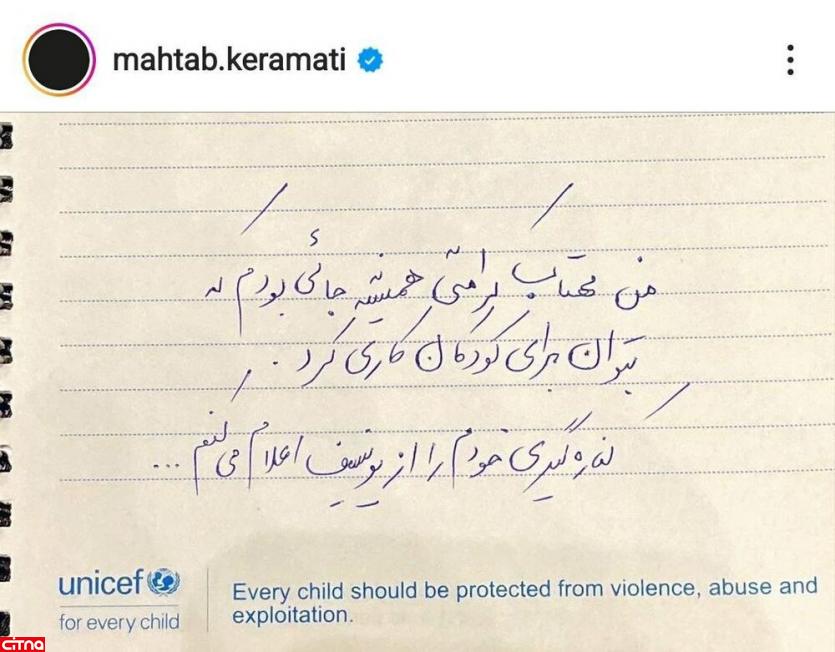 mahtab.keramati
من مهتاب کرامتی همیشه جائی بودم که
بتوان برای کودکان کاری کرد.
کناره گیری خودم را از یونیسف اعلام می کنم...
unicef
for every child
Every child should be protected from violence, abuse and
exploitation.
CITNA